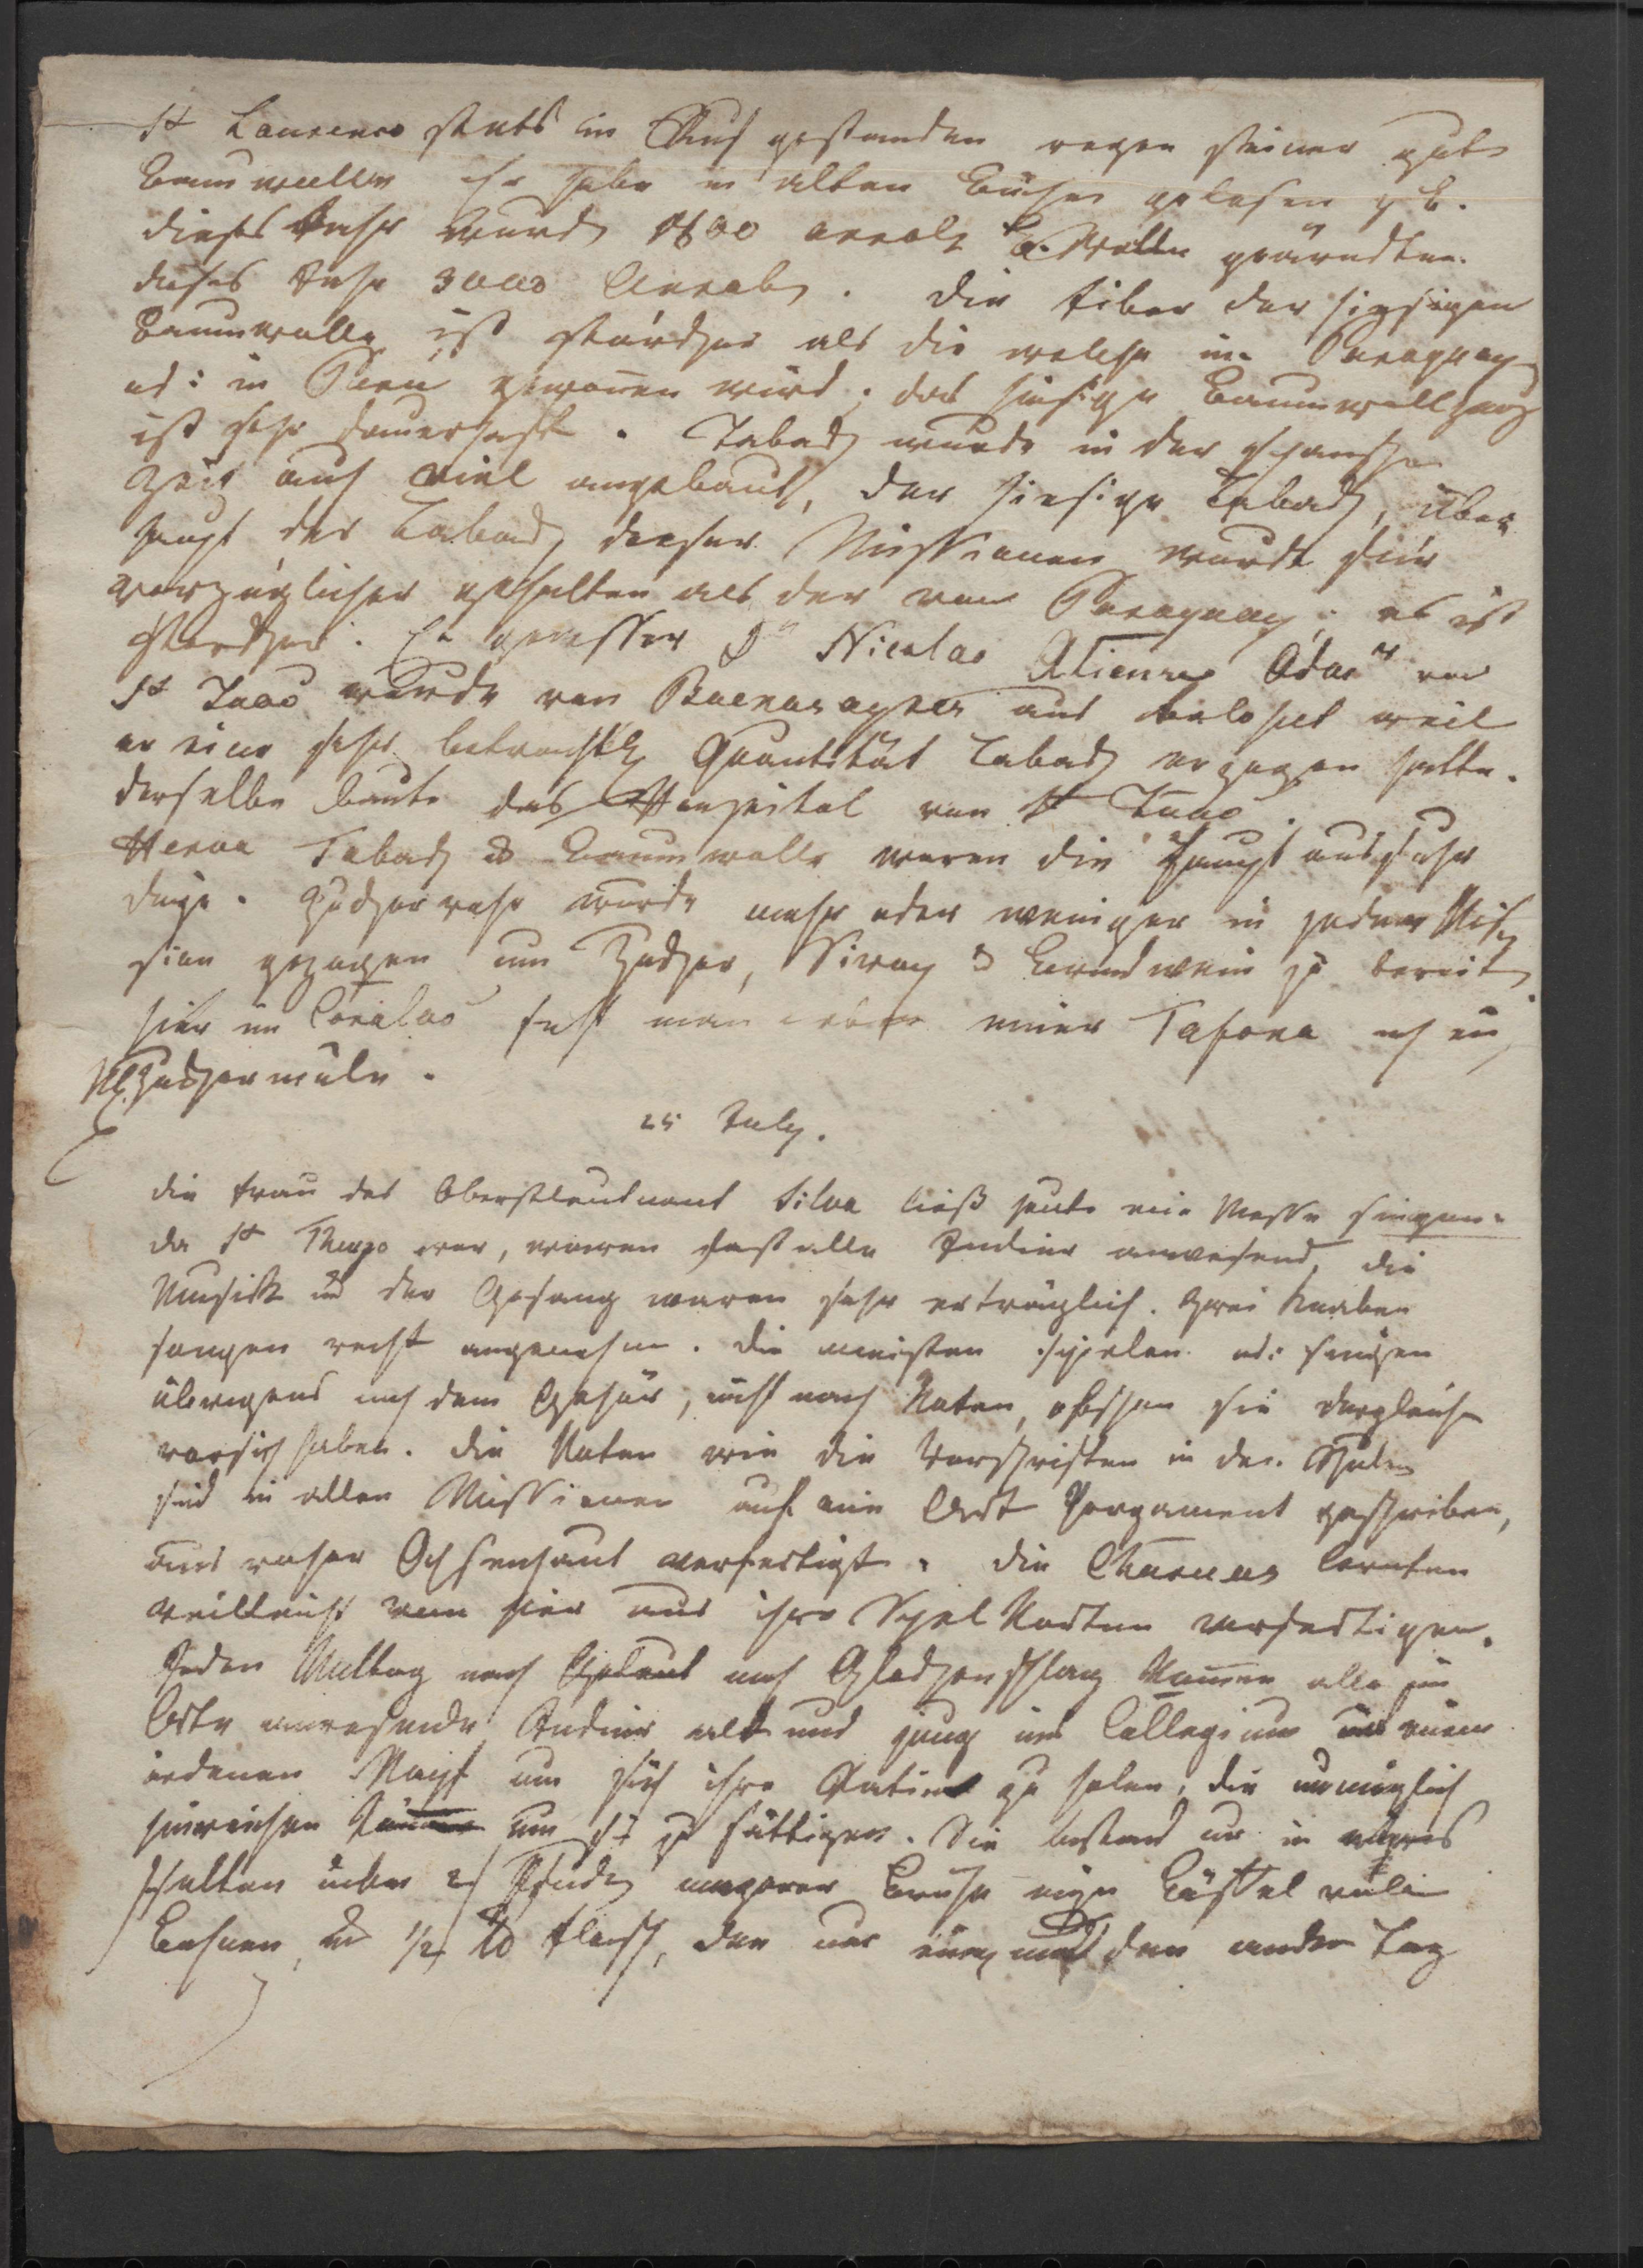 St Laurenco stets im Ruf gestanden wegen seiner gute
Baumwolle ich habe in alten Bücher gelesen z. B.
dieses Jahr wurde 1800 arrobs B. Wolle geärndten.
dieses Jahr 3000 Arrobs. die Fiber der hiesigen
Baumwolle ist stärcker als die welche in Paraguay
od: in Peru gewonnen wird; das hiesige Baumwollzeug
ist sehr dauerhaft. Taback wurde in der spanische
Zeit auch viel angebaut, der hiesige Taback, über
haupt der Taback dieser Missionen wurde für
vorzüglicher gehalten als der von Paraguay; er ist
stärcker. Ein gewisser Dn Nicolas Atienso von
St Joao wurde von Buenosayres aus belohnt weil
er eine sehr beträchtl. Quantität Taback erzogen hatte.
derselbe baute das Hospital von St Joao.
Herva Taback & Baumwolle waren die Hauptausfuhr
dinge. Zuckerrohr wurde mehr oder weniger in jeder Mis
sion gezogen um Zucker, Sirop & Brandwein zu bereit
hier in Coralao sieht man neben einer Tafona noch ein
Kl. Zuckermüle.
25 July.
die Frau des Oberstleutnant Silva ließ heute eine Messe singen.
da St Thiago war, waren fast alle Indier anwesend, die
Musick und der Gesang waren sehr erträglich. Zwei Knaben
sangen recht angenehm. die meisten spielen od: singen
übrigens nach dem Gehör, nicht nach Noten, obschon sie dergleichen
vorsich haben. die Noten wie die Vorschriften in den Schulen
sind in allen Missionen auf eine Art Pergament geschrieben,
aus roher Ochsenhaut verfertigt. die Charuas lernten
vielleicht von hier aus ihre Spiel Karten verfertigen.
Jeden Mittag nach Geläut nach Glockenschlag kamen alle im
Orte anwesende Indier alt und jung ins Collegium mit einem
irdenen Napf um sich ihre Ration zu holen, die unmöglich
hinreichen um sie zu sättigen. Sie bestand nur in
selten über Stück magerer Brühe einige Löffel voll
Bohnen, und 1/2 ℔ Fleisch, der nur einen und den andern Tag